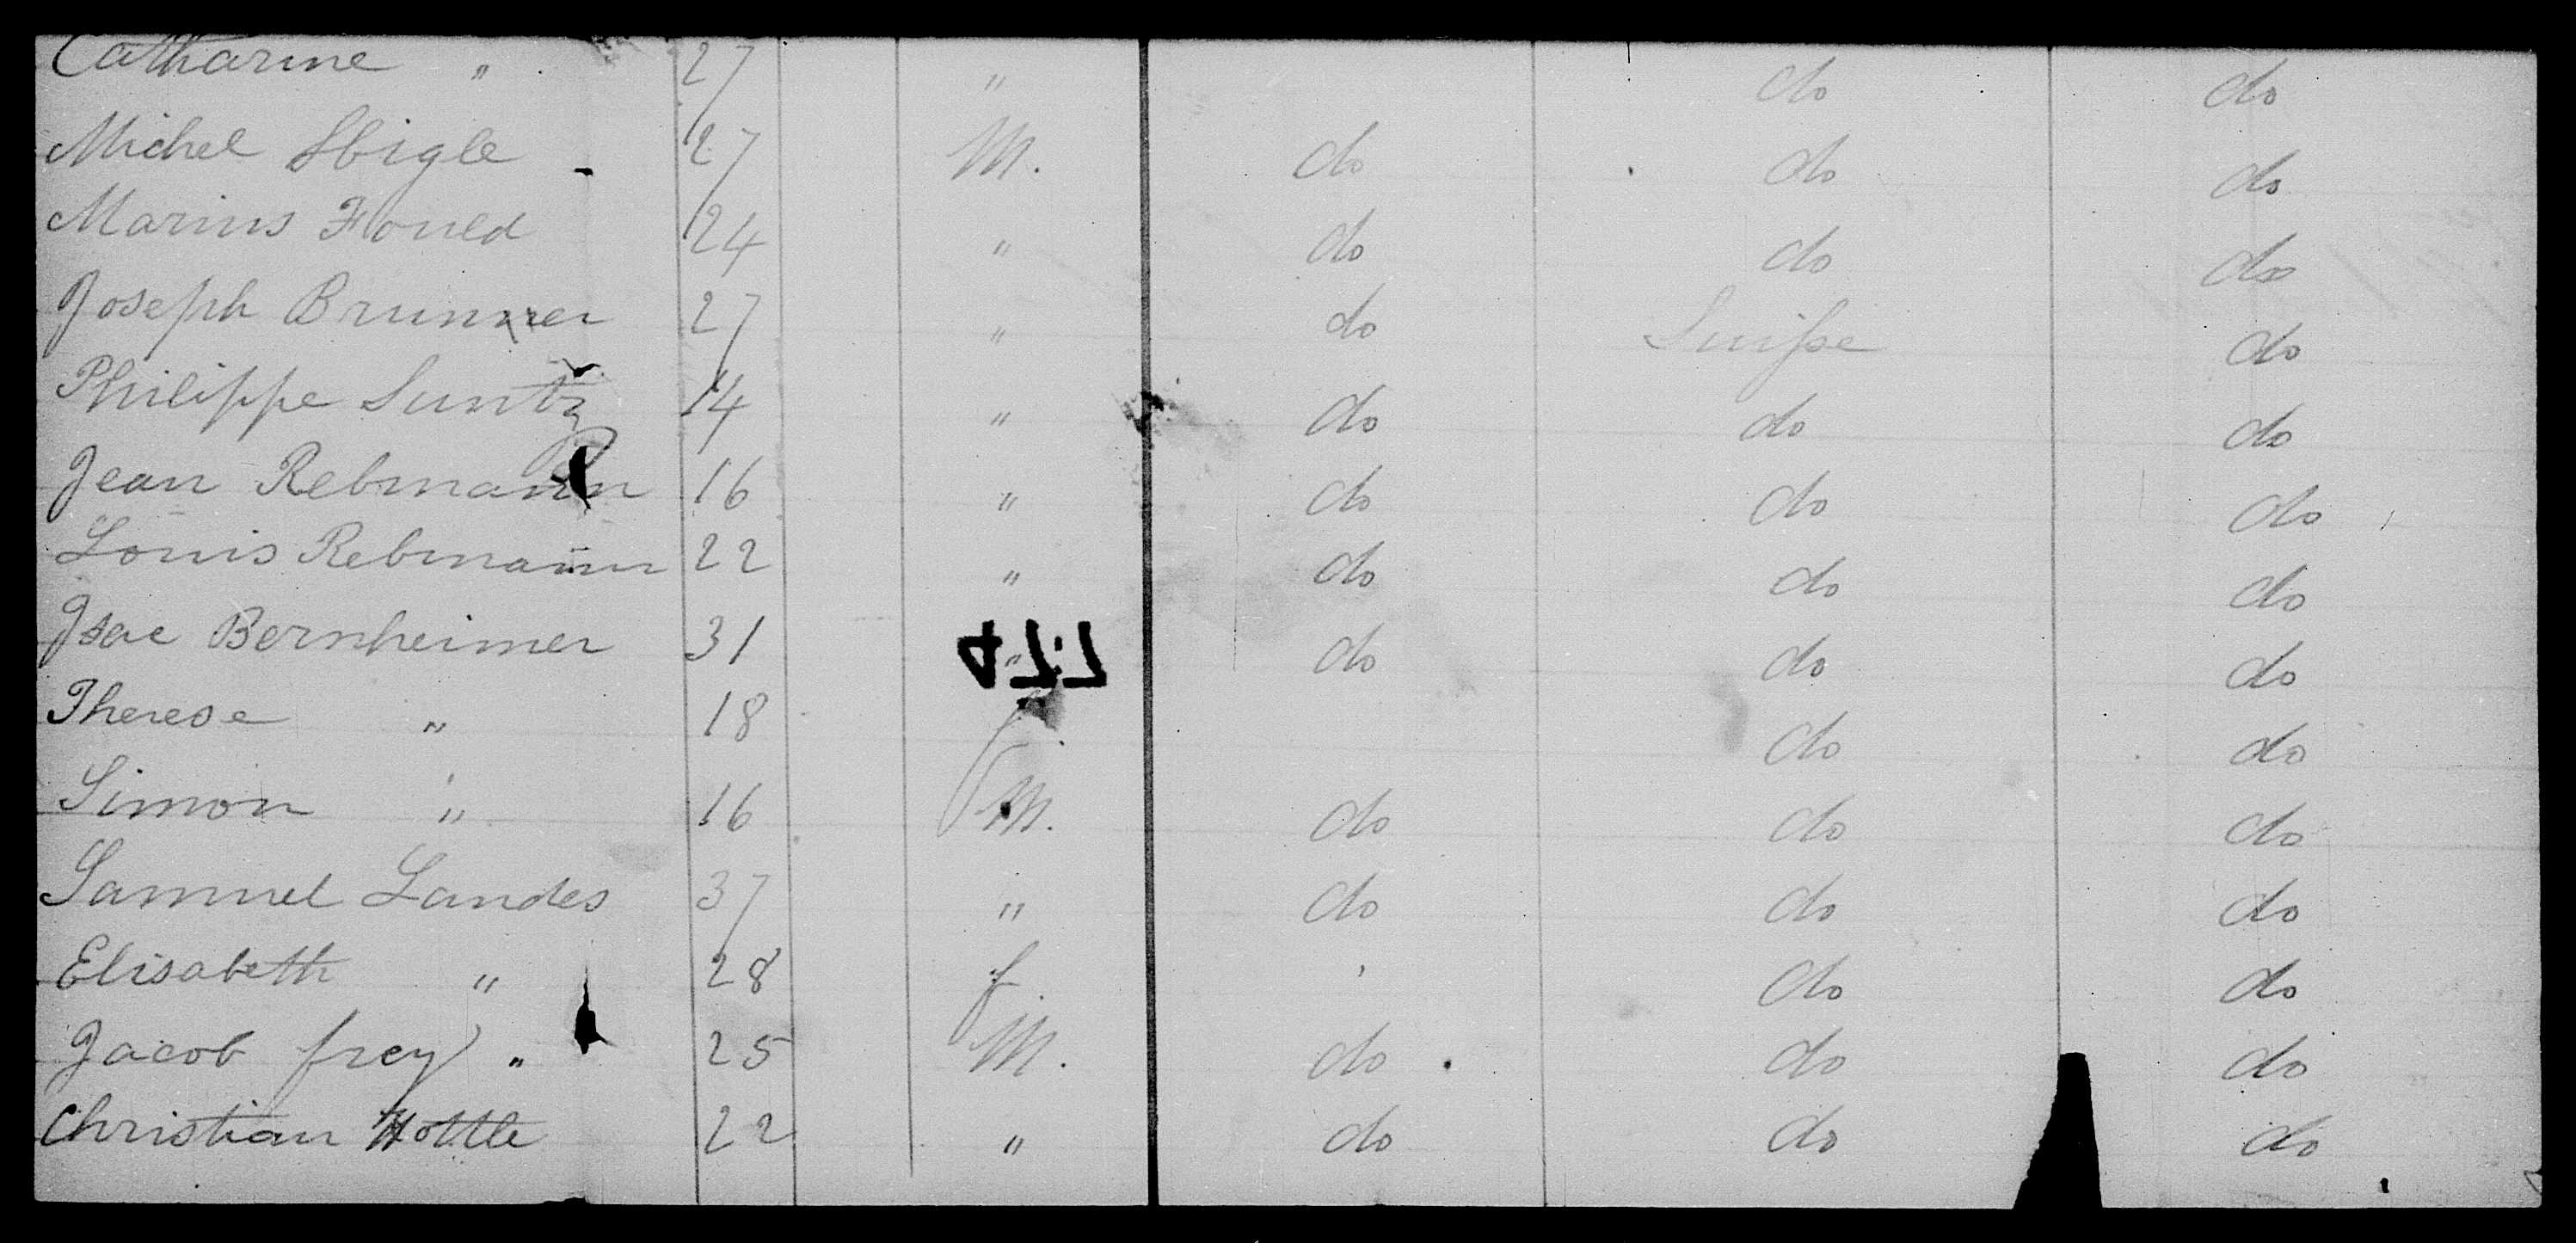 Catharine " 27 " do do
Michel Sbigle 27 M. do do do
Marius Fould 24 " do do do
Joseph Brunner 27 " do Suisse do
Philippe Suntz 14 " do do do
Jean Rebmann 16 " do do do
Louis Rebmann 22 " do do do
Isac Bernheimer 31 " do do do
Therese " 18 f. do do
Simon " 16 M. do do do
Samuel Landes 37 " do do do
Elisabeth " 28 f. do do
Jacob frey " 25 M. do do do
Christian Hottle 22 " do do do